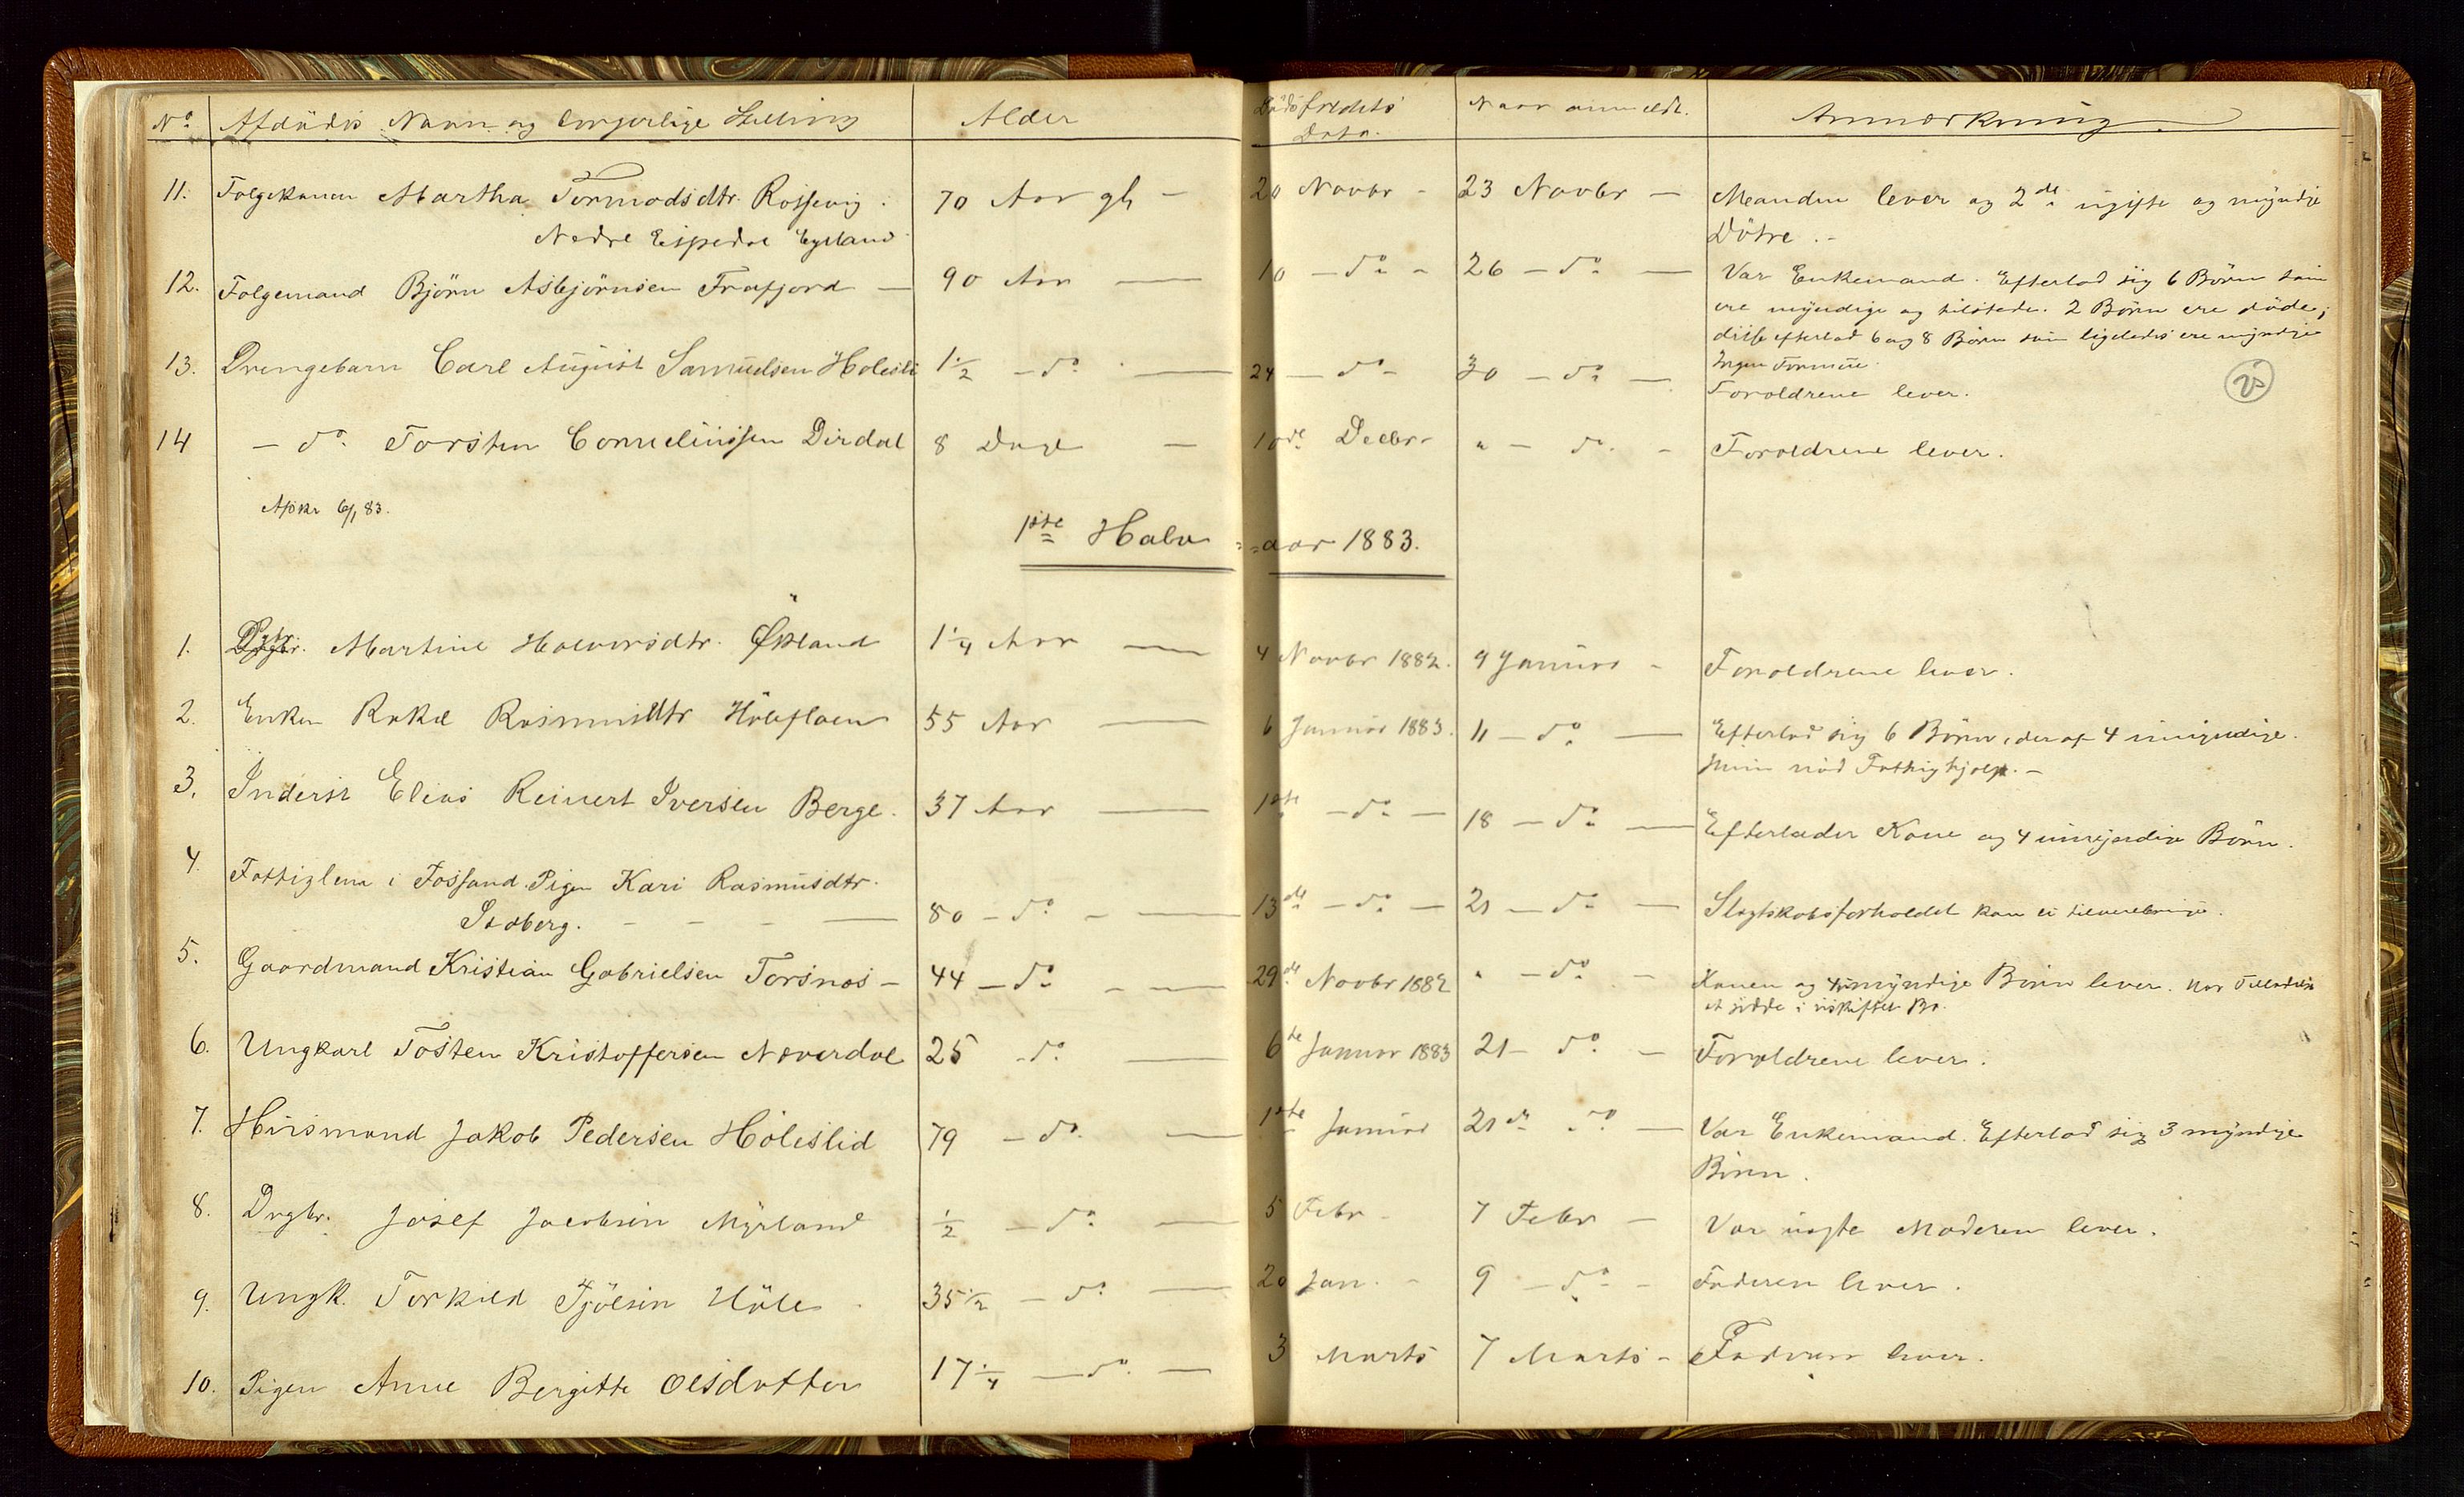 No Afdødes Navn og borgerlige Stilling Alder Dødsfaldets Naar anmeldt. Anmærkning
Data.
11. Folgekonen Martha Tormodsdtr. Rossevig. 70 Aar gl. – 20 Novbr – 23 Novbr – Manden lever og 2de ugifte og myndige
Nedre Eispedal Egeland Døtre. –
12. Folgemand Bjørn Asbjørnsen Frafjord – 90 Aar – 10 – do – 26 – do – Var Enkemand. Efterlod sig 6 Børn som
ere myndige og tilstede. 2 Børn ere døde;
disse efterlod 6 og 8 Børn som ligeledes ere myndige
Ingen Formue.
13. Drengebarn Carl August Samuelsen Holesli 1 1/2 – do – 24 – do – 30 – do – Forældrene lever.
14 – do. Torsten Corneliussen Dirdal 8 Dage – 10de Decbr – " – do. – Forældrene lever.
Afskr 6/1 83.
1ste Halv=aar 1883.
1. Pgbr. Martine Halvorsdtr. Øksland 1 1/4 Aar – 4 Novbr 1882. 9 Januar – Forældrene lever.
2. Enken Rakel Rasmusdtr Høleflaen 55 Aar – 6 Januar 1883. 11 – do – Efterlod sig 6 Børn, deraf 4 umyndige.
nød Fattighjælp. –
3. Inderst Elias Reinert Iversen Berge. 37 Aar – 1ste – do – 18 – do – Efterlader Kone og 4 umyndige Børn.
4. Fattiglem i Fossand. Pigen Kari Rasmusdtr.
Sedberg. – – – 80 – do – 13de – do – 21 – do – Slægtskabsforholdet kan ei tilveiebringes.
5. Gaardmand Kristian Gabrielsen Torsnes – 44 – do – 29de Novbr 1882 " – do – Konen og 4 umyndige Børn lever. Har Tilladelse
at sidde i uskiftet Bo.
6. Ungkarl Tosten Kristoffersen Næverdal 25 – do – 6te Januar 1883 21 – do – Forældrene lever.
7. Husmand Jakob Pedersen Høleslid 79 – do. – 1ste Januar 21de do – Var Enkemand. Efterlod sig 3 myndige
Børn.
8. Drgbr. Josef Jacobsen Myrland 1/2 – do – 5 Febr – 7 Febr – Var uægte Moderen lever.
9. Ungk. Torkild Tjølsen Høle 35 1/2 – do – 20 Jan. – 9 – do – Faderen lever.
10. Pigen Anne Bergitte Olsdatter 17 1/4 – do. – 3 Marts 7 Marts – Faderen lever.